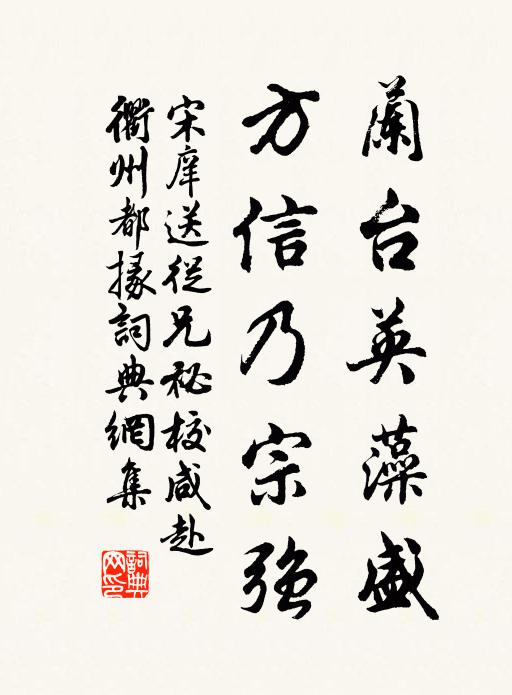 蘭台英藻盛
方信乃宗強
宋庠送從兄秘校咸赴
衢州都掾詞典網集
詞典
网印